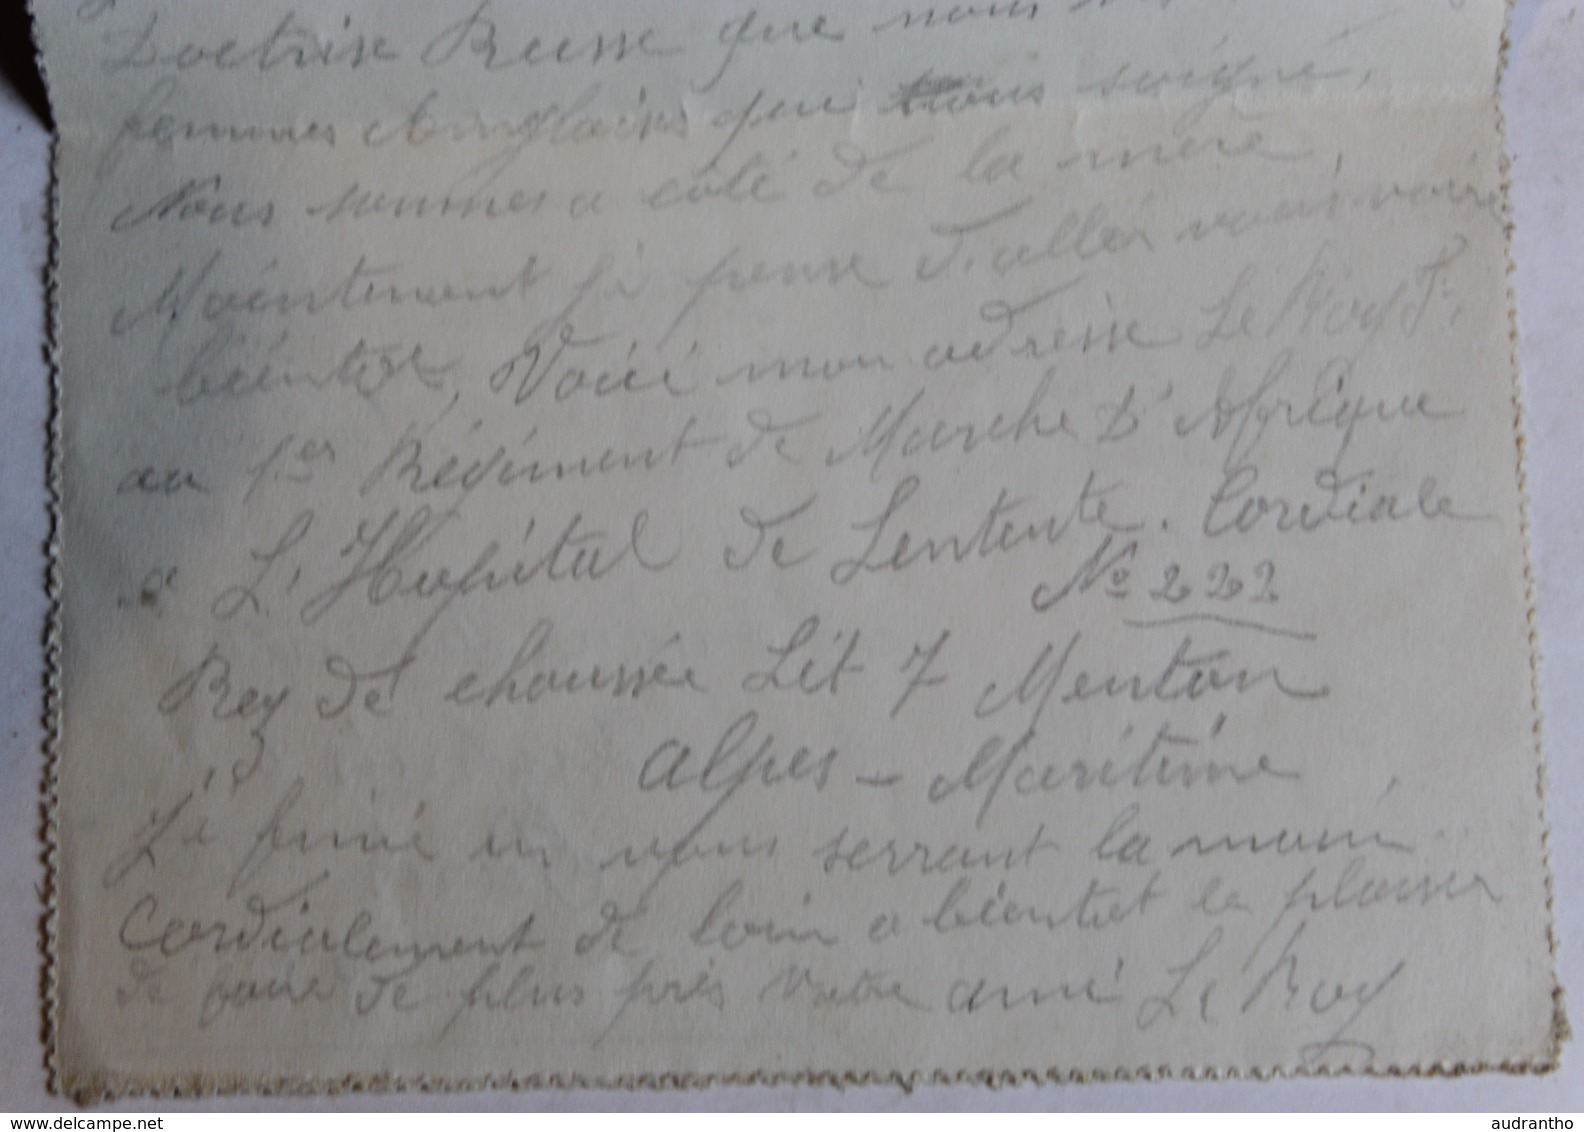 Doctrise Russe que nous
femmes Anglaises qui nous soigné,
Nous sommes a coté de la mere,
Maintenant je pense d'aller vous voire
bientot, Voici mon adresse Le Roy
au 1er Régiment de Marche D'Afrique
a L'Hopital de Lentente. Cordiale
No 222
Rey de chaussée Lit 7 Menton
Alpes - Maritime
Je finie en vous serrant la main
Cordialement de loin a bientot le plaisir
de faire de plus près Votre ami Le Roy
www.delcampe.net
audrantho